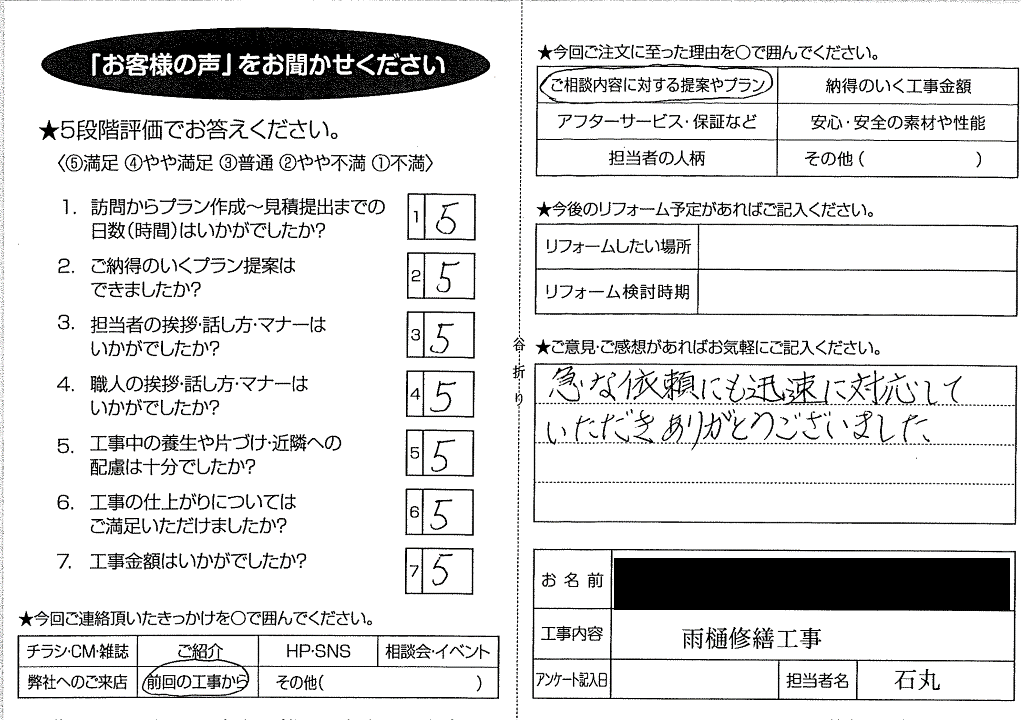 「お客様の声」をお聞かせください
★5段階評価でお答えください。
〈⑤満足 ④やや満足 ③普通 ②やや不満 ①不満〉
1. 訪問からプラン作成~見積提出までの
日数(時間)はいかがでしたか?
1 5
2. ご納得のいくプラン提案は
できましたか?
2 5
3. 担当者の挨拶・話し方・マナーは
いかがでしたか?
3 5
4. 職人の挨拶・話し方・マナーは
いかがでしたか?
4 5
5. 工事中の養生や片づけ・近隣への
配慮は十分でしたか?
5 5
6. 工事の仕上がりについては
ご満足いただけましたか?
6 5
7. 工事金額はいかがでしたか?
7 5
★今回ご連絡頂いたきっかけを○で囲んでください。
チラシ・CM・雑誌 ご紹介 HP・SNS 相談会・イベント
弊社へのご来店 前回の工事から その他( )
谷折り
★今回ご注文に至った理由を○で囲んでください。
ご相談内容に対する提案やプラン 納得のいく工事金額
アフターサービス・保証など 安心・安全の素材や性能
担当者の人柄 その他( )
★今後のリフォーム予定があればご記入ください。
リフォームしたい場所
リフォーム検討時期
★ご意見・ご感想があればお気軽にご記入ください。
急な依頼にも迅速に対応して
いただきありがとうございました
お名前
工事内容 雨樋修繕工事
アンケート記入日 担当者名 石丸